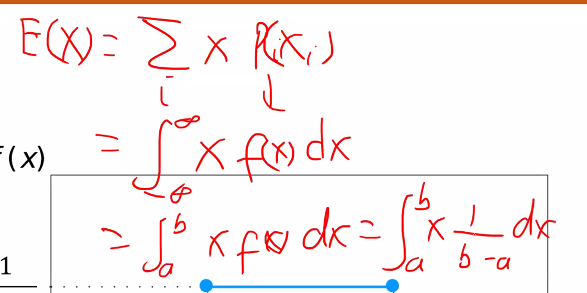 E(X) = ∑ x P(x_i)
i ↓
= ∫_{-∞}^{∞} x f(x) dx
f(x)
= ∫_a^b x f(x) dx = ∫_a^b x 1/(b-a) dx
1